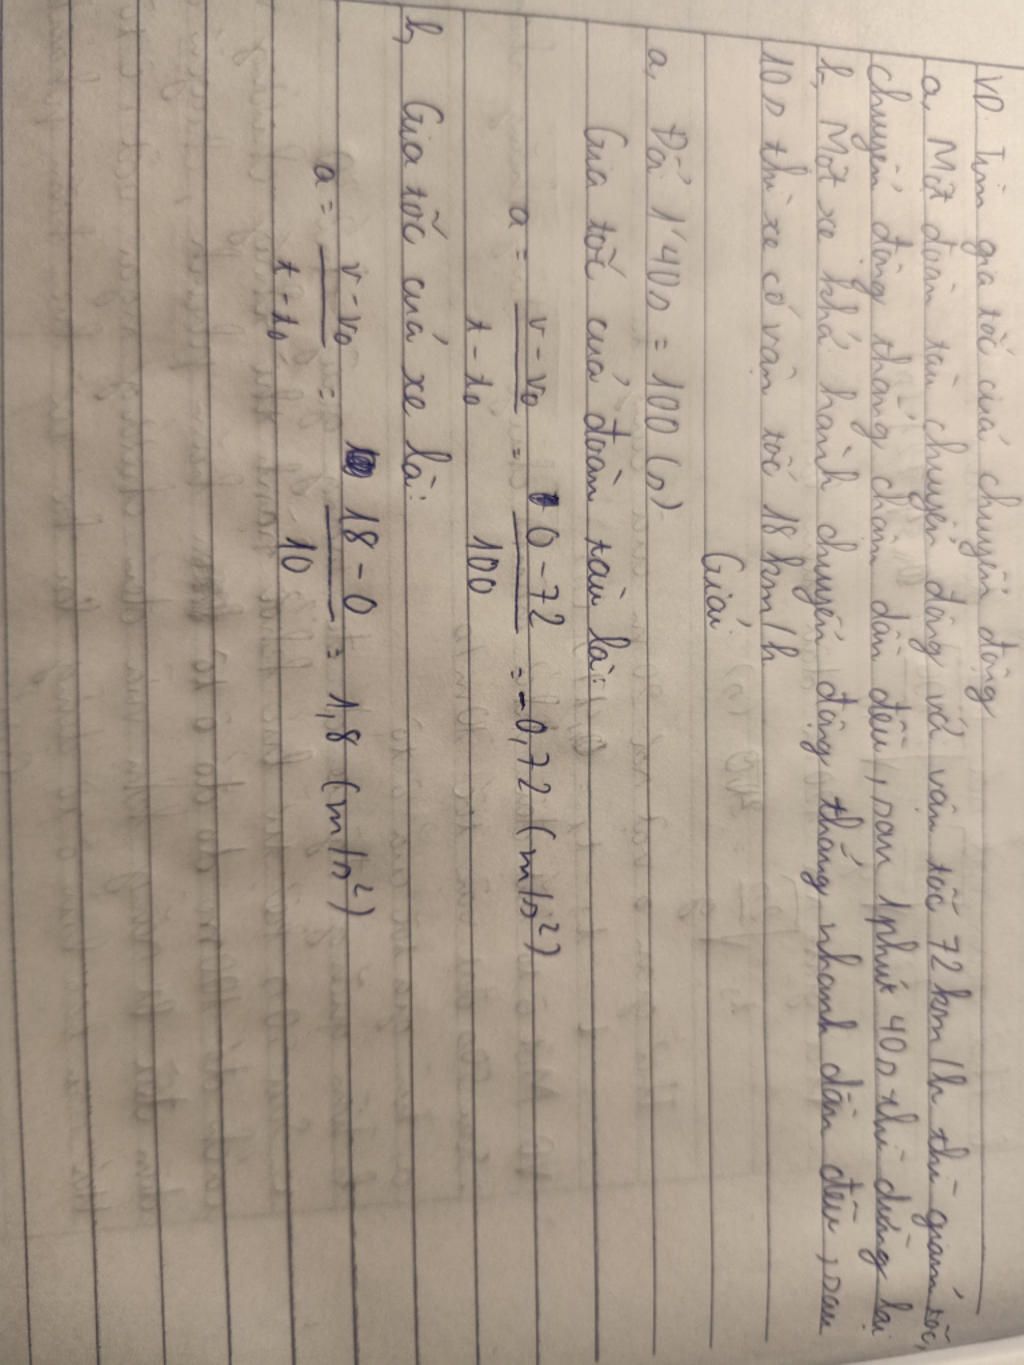 VD Tìm gia tốc của chuyển động
a, Một đoàn tàu chuyển động với vận tốc 72 km/h thì giảm tốc,
chuyển động thẳng chậm dần đều, sau 1 phút 40s thì dừng lại
b, Một xe khởi hành chuyển động thẳng nhanh dần đều, sau
10s thì xe có vận tốc 18 km/h
Giải
a, Đổi 1'40s = 100 (s)
Gia tốc của đoàn tàu là:
a = (v - v₀)/(t - t₀) = (0 - 72)/100 = -0,72 (m/s²)
b, Gia tốc của xe là:
a = (v - v₀)/(t - t₀) = (18 - 0)/10 = 1,8 (m/s²)